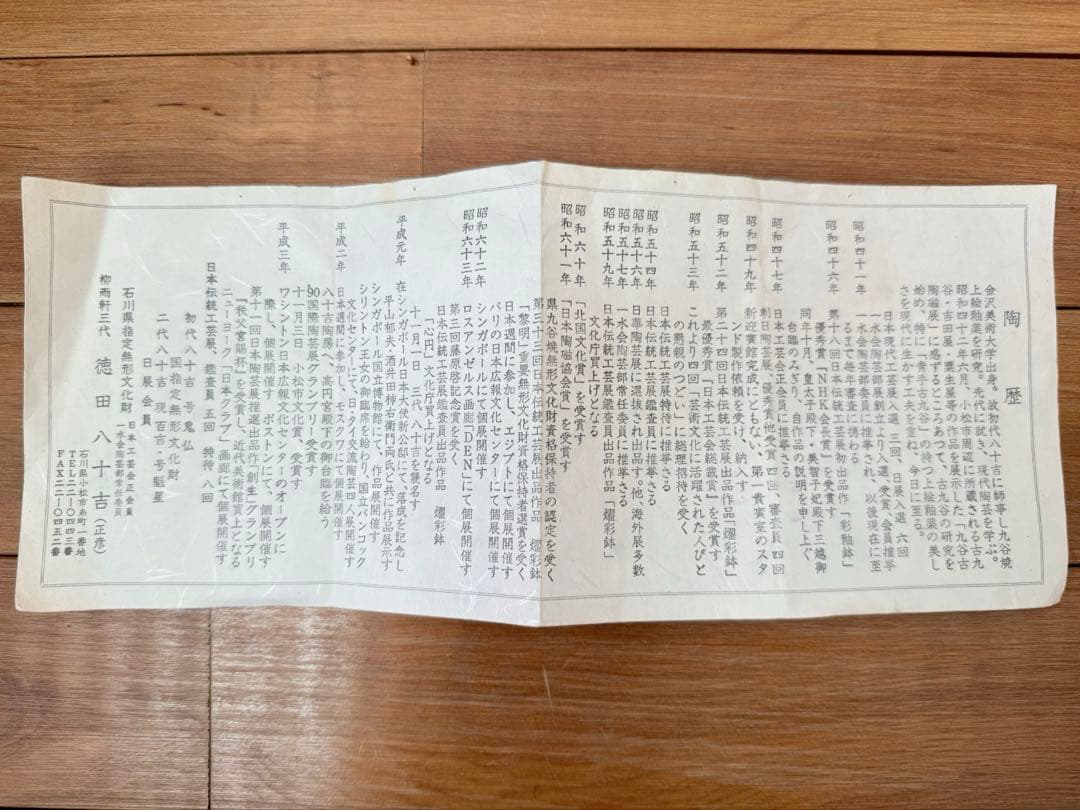 陶歴
金沢美術大学出身。故初代八十吉に師事し九谷焼
上絵釉薬を研究。先代に続き、現代陶芸を学ぶ。
昭和四十二年六月、小松市周辺に所蔵される古九
谷・吉田屋・粟生屋等の作品を展示した「九谷古
陶磁展」に感ずるところあって、古九谷の研究を
始め、特に「青手古九谷」の持つ上絵釉薬の美し
さを現代に生かす工夫を重ね、今日に至る。
昭和四十一年
日本現代工芸展入選 三回、日展入選 六回
一水会陶芸部展創立より入選、受賞、会員推挙
一水会陶芸部委員に推挙され、以後現在に至
るまで毎年審査に携わる。
昭和四十六年
第十八回日本伝統工芸展初出品作「彩釉鉢」
優秀賞「NHK会長賞」を受賞す
同年十月、皇太子殿下・美智子妃殿下三越御
台臨のみぎり、自作品の説明を申し上ぐ
昭和四十七年
日本工芸会正会員に推挙さる
朝日陶芸展、優秀賞他受賞 四回、審査員 四回
昭和四十九年
新迎賓館完成にともない、第一貴賓室のスタ
ンド製作依頼を受け、納入す
昭和五十二年
第二十四回日本伝統工芸展出品作品「燿彩鉢」
最優秀賞「日本工芸会総裁賞」を受賞す
昭和五十三年
これより四回「芸術文化に活躍された人びと
の懇親のつどい」に総理招待を受く
昭和五十四年
日本伝統工芸展特待に推挙さる
昭和五十六年
日本伝統工芸展鑑査員に推挙さる
日華陶芸展に選抜され出品す。他、海外展多数
昭和五十七年
一水会陶芸部常任委員に推挙さる
昭和五十九年
日本伝統工芸展鑑査員出品作品「燿彩鉢」
文化庁買上げとなる
昭和六十年
「北国文化賞」を受賞す
昭和六十一年
「日本陶磁協会賞」を受賞す
県九谷焼無形文化財資格保持者の認定を受く
第三十三回日本伝統工芸展出品作品 燿彩鉢
「黎明」重要無形文化財資格保持者選賞を受く
日本週間に参加し、エジプトにて個展開催す
パリの日本広報文化センターにて個展開催す
昭和六十二年
シンガポールにて個展開催す
昭和六十三年
ロスアンゼルス画廊「DEN」にて個展開催す
第三回藤原啓記念賞を受く
日本伝統工芸展鑑査員出品作品 燿彩鉢
「心円」文化庁買上げとなる
十一月一日 三代 八十吉を襲名す
平成元年
在シンガポール日本大使新公邸にて、落成を記念し
平山郁夫・酒井田柿右衛門両氏と共に作品展示す
シンガポール国立博物館にて、作品展開催す
シリントン王女の御臨席を給わり、国立バンコック
文化センターにて、日・タイ交流陶芸四人展開催す
平成二年
日本週間に参加し、モスクワにて個展開催す
八十吉陶房へ、高円宮殿下の御台臨を給う
90国際陶芸展グランプリー受賞す
十一月三日 小松市文化賞、受賞す
平成三年
ワシントン日本広報文化センターのオープンに
際し、個展開催す ボストンにて、個展開催す
第十一回日本陶芸展推選出品作「創生」グランプリ
「秩父宮賜杯」を受賞し、近代美術館買上となる
ニューヨーク「日本クラブ」画廊にて個展開催す
日本伝統工芸展、鑑査員 五回 特待 八回
初代 八十吉 号 鬼仏
国指定無形文化財
二代 八十吉 現 百吉・号魁星
日展会員
石川県指定無形文化財
日本工芸会正会員
一水会陶芸部常任委員
柳雨軒三代 徳田八十吉(正彦)
石川県小松市糸町一番地
TEL二二-〇四四三番
FAX二二-〇四五二番